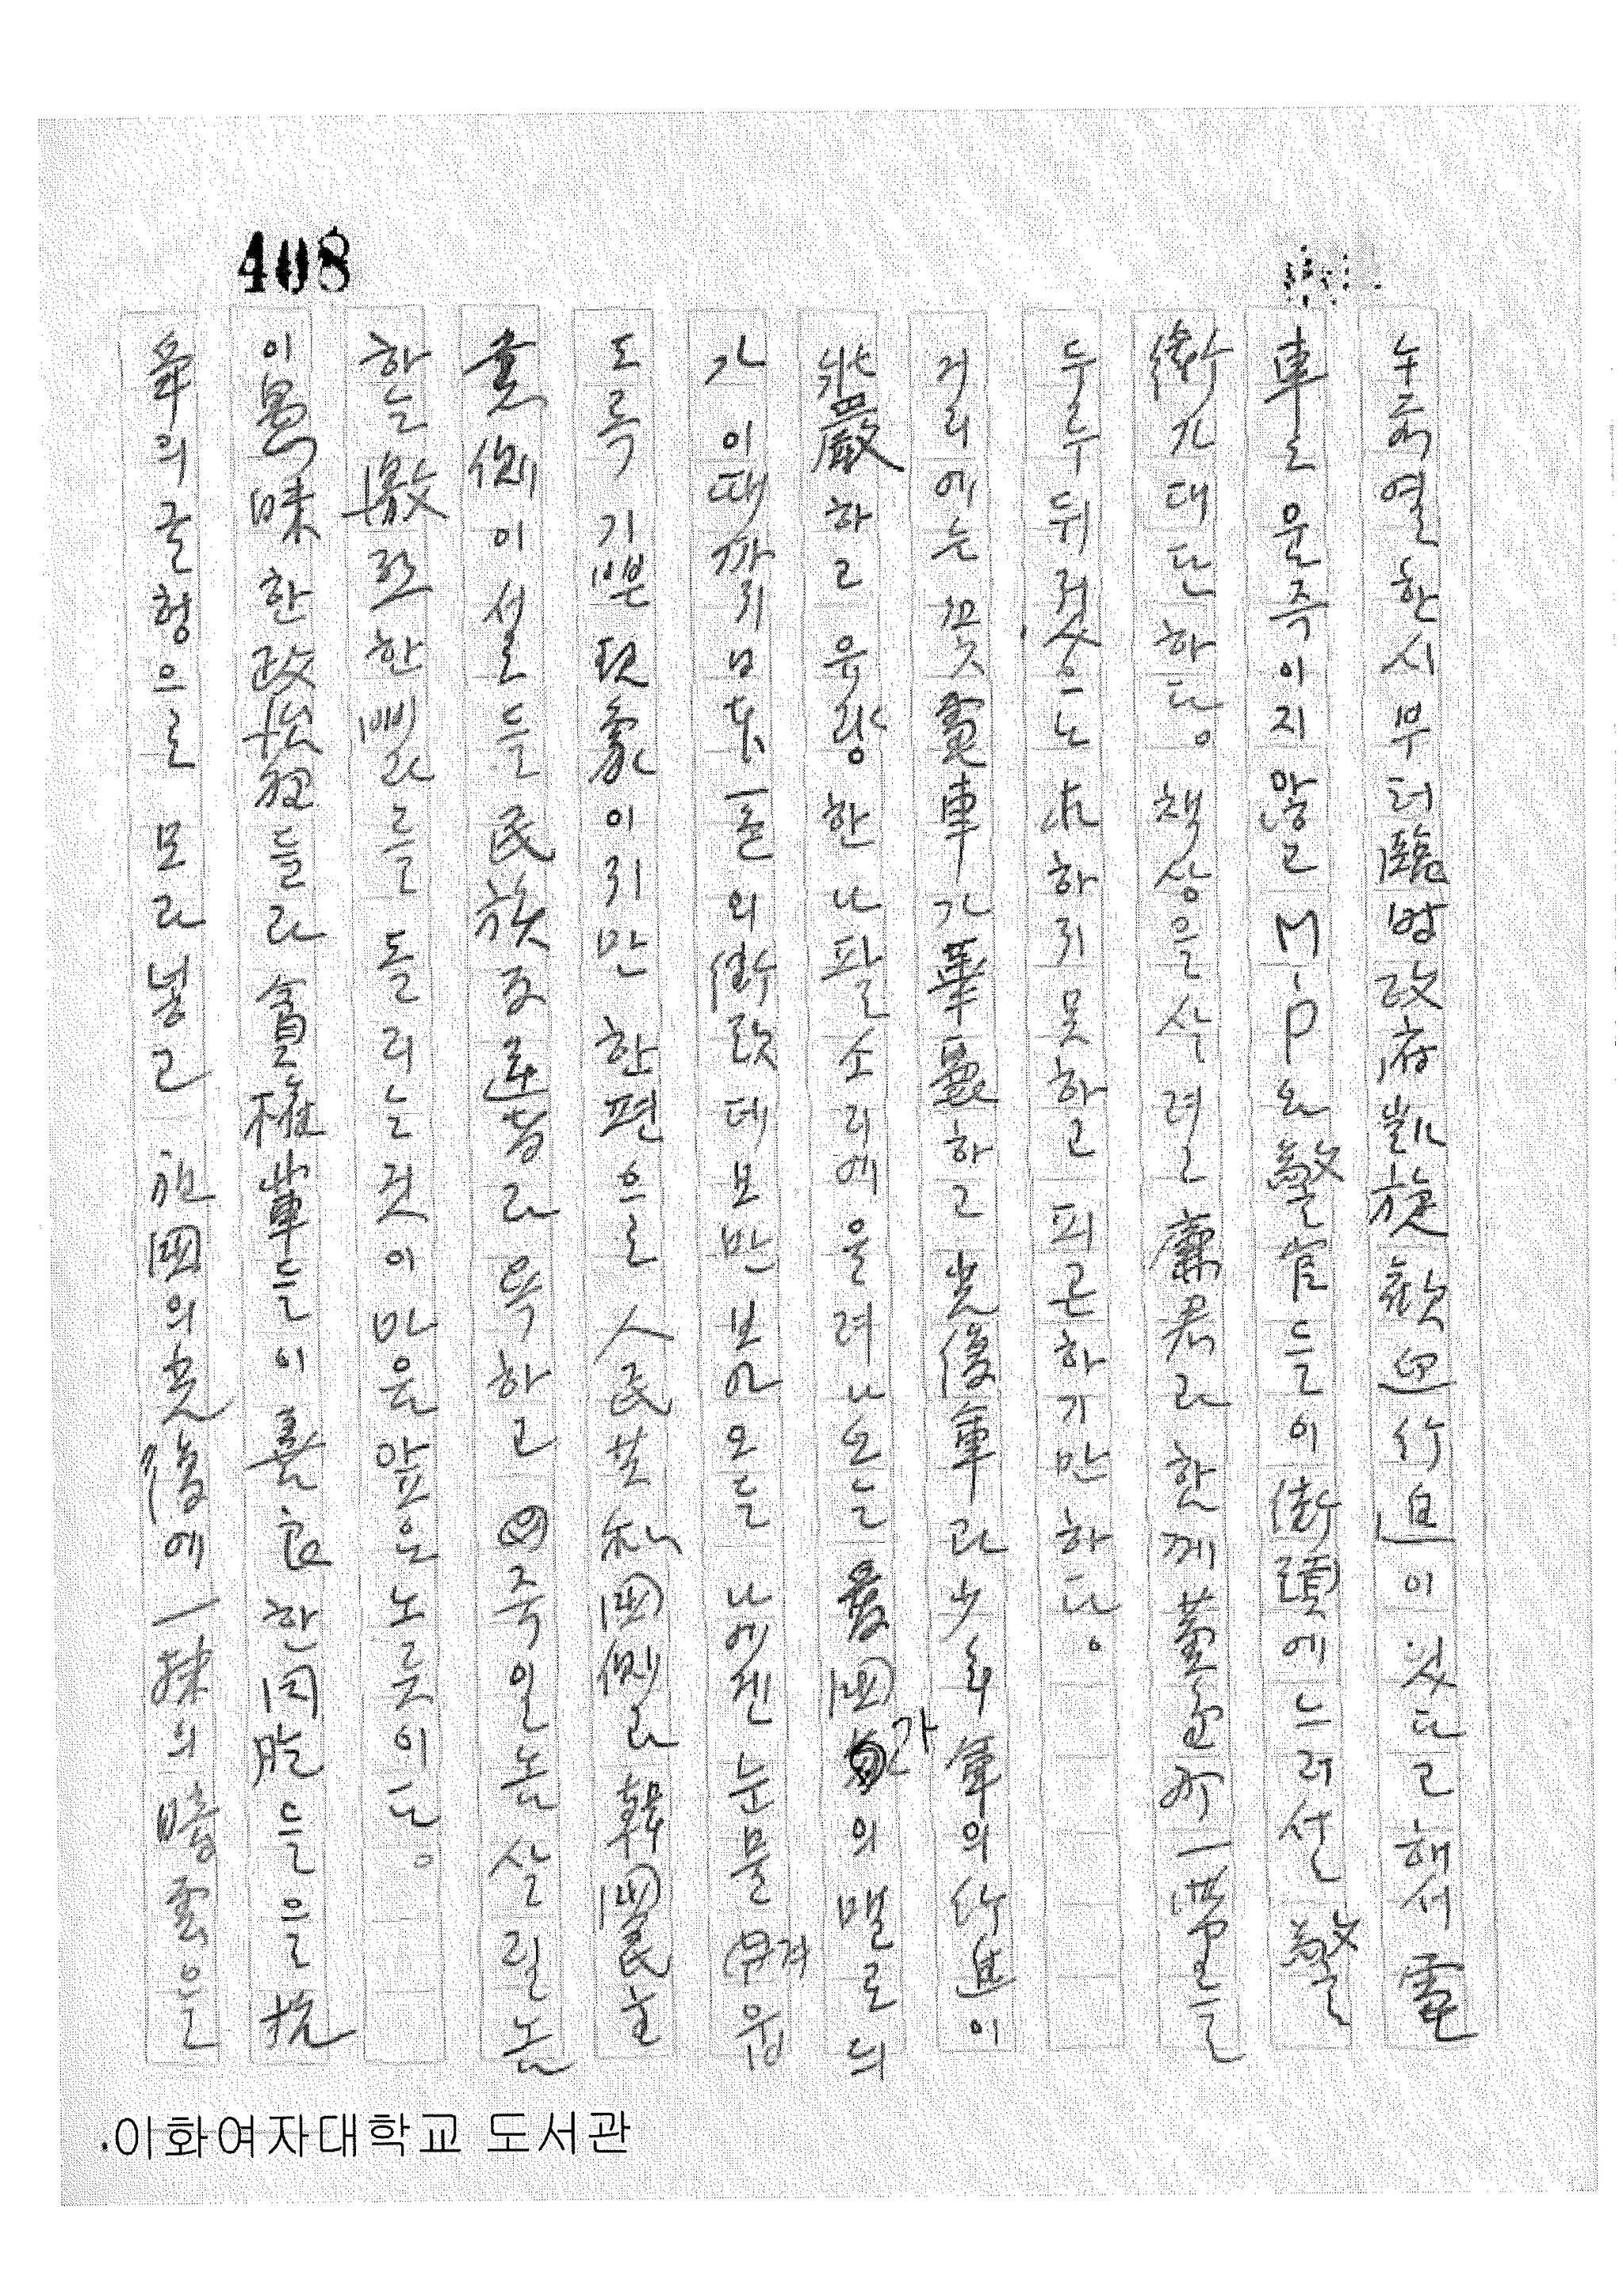 408
누즘 열한시부터 臨時政府凱旋歡迎行進이 있다고 해서 電
車도 움즉이지 않고 M.P와 警官들이 街頭에 느러선 警
衛가 대단하다. 책상을 사려고 廉君과 함께 黃金町一帶를
두루 뒤젓으나 求하지 못하고 피곤하기만 하다.
거리에는 꽃電車가 華麗하고 光復軍과 少年軍의 行進이
壯嚴하고 유량한 나팔소리에 울려나오는 愛國가의 멜로듸
가 이때까지 日本一色의 街頭데모만 보아오든 나에겐 눈물겨웁
도록 기쁜 現象이지만 한편으로 人民共和國側과 韓國民主
黨側이 서로들 民族反逆者라 욕하고 죽일놈 살릴놈
하는 撒포한 삐라를 돌리는 것이 마음 앞은 노릇이다.
이 愚昧한 政治狂들과 貪權輩들이 善良한 同胞들을 抗
爭의 굴형으로 모라넣고 祖國의 光復에 一抹의 暗雲을
이화여자대학교 도서관